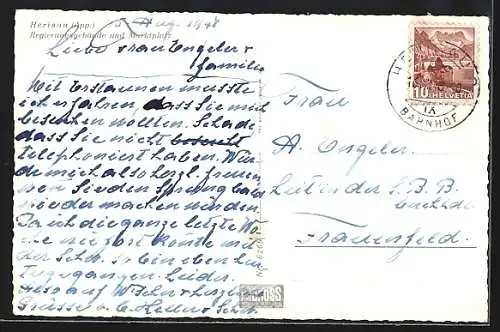 Herisau (App.)
Regierungsgebäude und Marktplatz
5. Aug. 1948
Liebe Frau Engeler &
Familie
Mit Erstaunen musste
ich erfahren, dass Sie mich
besuchen wollten. Schade
dass Sie nicht
telephoniert haben. Wür
de mich also herzl. freuen
wenn Sie den Sprung bald
wieder machen würden.
Da ich die ganze letzte Wo
che nie fort konnte mit
der Schw. so bin eben
gegangen. Leider.
auf Wseh'n & herzl
Grüsse v. E.
Frau
A. Engeler
Leiter der S.B.B.
Frauenfeld.
10 HELVETIA
HERISAU
IX
BAHNHOF